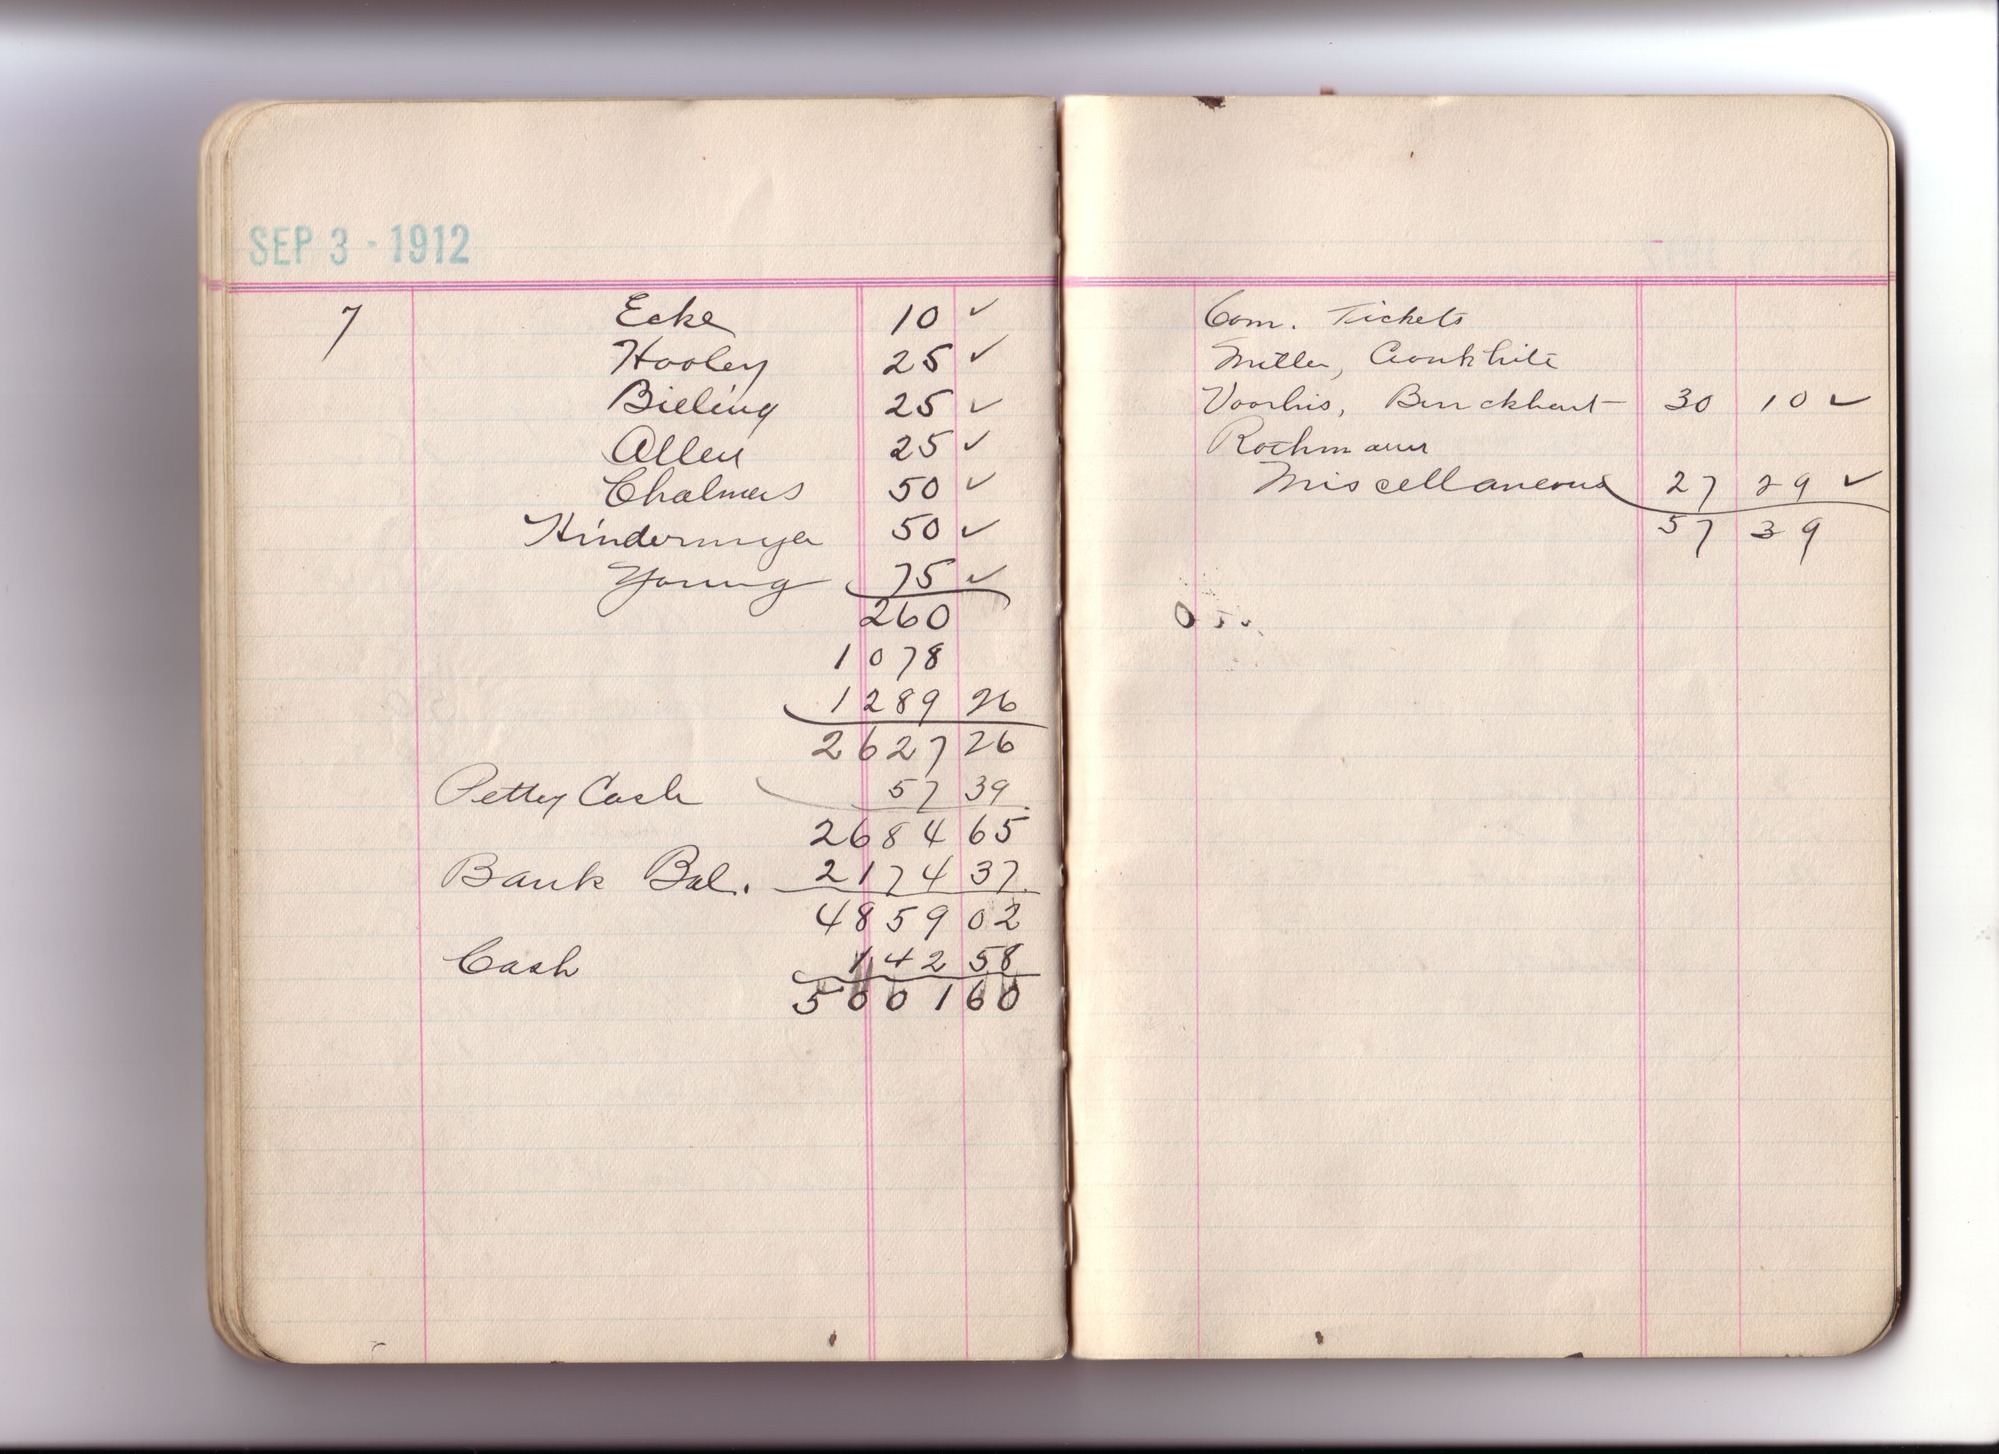 SEP 3 - 1912
7 Ecke 10 ✓
Hooley 25 ✓
Bieling 25 ✓
Allen 25 ✓
Chalmers 50 ✓
Hindermyer 50 ✓
Young 75 ✓
260
1078
1289 26
2627 26
Petty Cash 57 39
2684 65
Bank Bal. 2174 37
4859 02
Cash 142 58
5001 60
Com. Tickets
Miller, Cronkhite
Voorhis, Burckhart 30 10 ✓
Rothmann
Miscellaneous 27 29 ✓
57 39